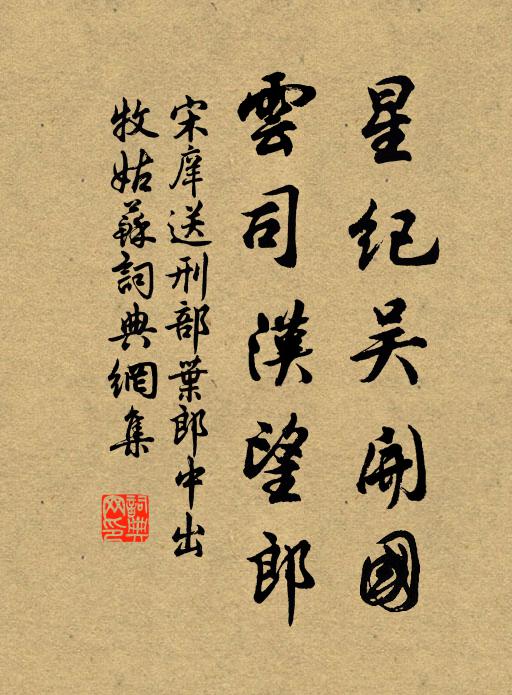 星紀吴開國
雲司漢望郎
宋庠送刑部葉郎中出
牧姑蘇詞典網集
詞典
网印